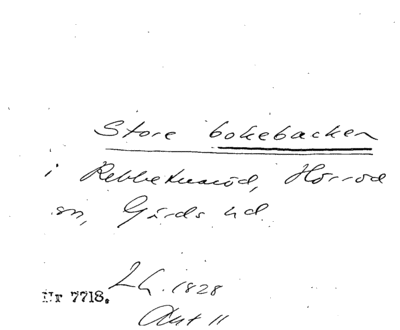 Store bokebacken
i Rebbetuaröd, Hörröd
sn, Gärds hd
Nr 7718. LG. 1828
Akt 11